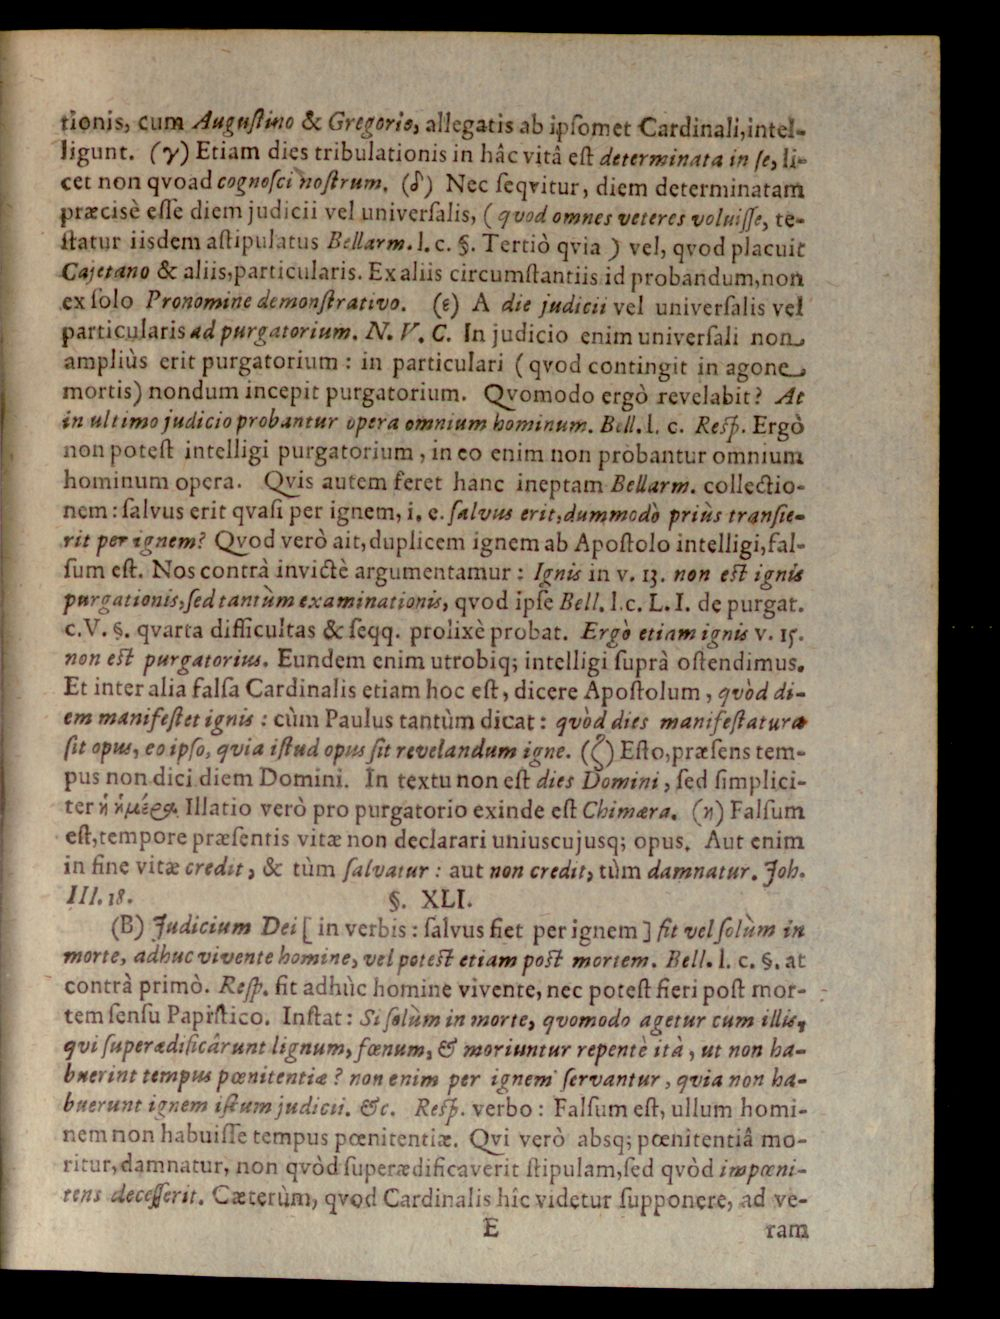 tionis, cum Augustino & Gregorio, allegatis ab ipsomet Cardinali, intel-
ligunt. (γ) Etiam dies tribulationis in hâc vitâ est determinata in se, li-
cet non qvoad cognosci nostrum. (δ) Nec seqvitur, diem determinatam
præcisè esse diem judicii vel universalis, (qvod omnes veteres voluisse, te-
statur iisdem astipulatus Bellarm. l. c. §. Tertiò qvia) vel, qvod placuit
Cajetano & aliis, particularis. Ex aliis circumstantiis id probandum, non
ex solo Pronomine demonstrativo. (ε) A die judicii vel universalis vel
particularis ad purgatorium. N. V. C. In judicio enim universali non
ampliùs erit purgatorium: in particulari (qvod contingit in agone
mortis) nondum incepit purgatorium. Qvomodo ergò revelabit? At
in ultimo judicio probantur opera omnium hominum. Bell. l. c. Resp. Ergò
non potest intelligi purgatorium, in eo enim non probantur omnium
hominum opera. Qvis autem feret hanc ineptam Bellarm. collectio-
nem: salvus erit qvasi per ignem, i. e. salvus erit, dummodò priùs transie-
rit per ignem? Qvod verò ait, duplicem ignem ab Apostolo intelligi, fal-
sum est. Nos contrà invictè argumentamur: Ignis in v. 13. non est ignis
purgationis, sed tantùm examinationis, qvod ipse Bell. l. c. L. I. de purgat.
c. V. §. qvarta difficultas & seqq. prolixè probat. Ergò etiam ignis v. 15.
non est purgatorius. Eundem enim utrobiq; intelligi suprà ostendimus.
Et inter alia falsa Cardinalis etiam hoc est, dicere Apostolum, qvòd di-
em manifestet ignis: cùm Paulus tantùm dicat: qvòd dies manifestatura
sit opus, eo ipso, qvia istud opus sit revelandum igne. (ζ) Esto, præsens tem-
pus non dici diem Domini. In textu non est dies Domini, sed simplici-
ter ἡ ἡμέρα. Illatio verò pro purgatorio exinde est Chimæra. (η) Falsum
est, tempore præsentis vitæ non declarari uniuscujusq; opus. Aut enim
in fine vitæ credit, & tùm salvatur: aut non credit, tùm damnatur. Joh.
III. 18. §. XLI.
(B) Judicium Dei [in verbis: salvus fiet per ignem] fit vel solùm in
morte, adhuc vivente homine, vel potest etiam post mortem. Bell. l. c. §. at
contrà primò. Resp. fit adhùc homine vivente, nec potest fieri post mor-
tem sensu Papistico. Instat: Si solùm in morte, qvomodo agetur cum illis,
qvi superædificârunt lignum, fœnum, & moriuntur repentè ità, ut non ha-
buerint tempus pœnitentiæ? non enim per ignem servantur, qvia non ha-
buerunt ignem istum judicii. &c. Resp. verbo: Falsum est, ullum homi-
nem non habuisse tempus pœnitentiæ. Qvi verò absq; pœnitentiâ mo-
ritur, damnatur, non qvòd superædificaverit stipulam, sed qvòd impœni-
tens decesserit. Cæterùm, qvod Cardinalis hîc videtur supponere, ad ve-
E ram